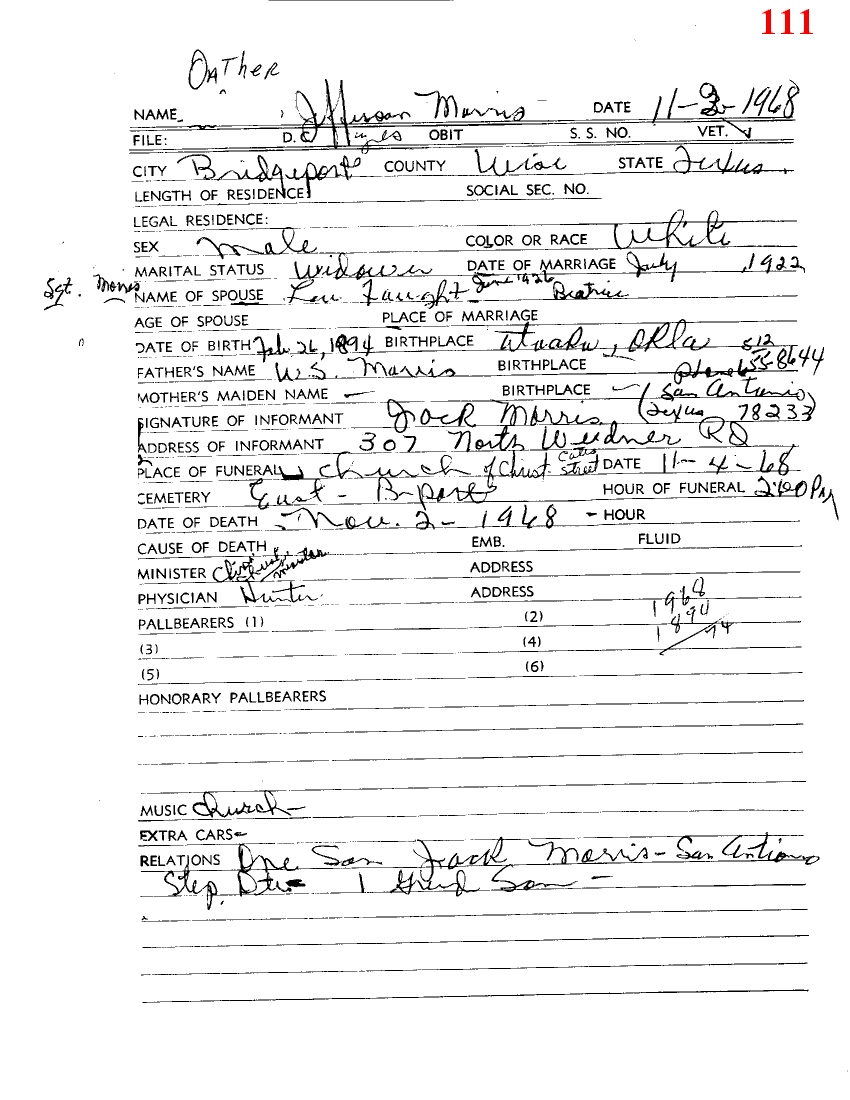 111
Oather
NAME Jefferson Morris DATE 11-2-1968
FILE: D.C. OBIT S. S. NO. VET.
CITY Bridgeport COUNTY Wise STATE Texas
LENGTH OF RESIDENCE SOCIAL SEC. NO.
LEGAL RESIDENCE:
SEX male COLOR OR RACE White
MARITAL STATUS Widower DATE OF MARRIAGE July , 1922
Sgt. Morris NAME OF SPOUSE Lou Faught June 1926 Beatrice
AGE OF SPOUSE PLACE OF MARRIAGE
DATE OF BIRTH Feb 26, 1894 BIRTHPLACE , Okla 512
FATHER'S NAME W.S. Morris BIRTHPLACE Phone 655-8644
MOTHER'S MAIDEN NAME — BIRTHPLACE — (San Antonio,
SIGNATURE OF INFORMANT Jack Morris (Texas 78233)
ADDRESS OF INFORMANT 307 North Weidner RD
PLACE OF FUNERAL Church of Christ Cates Street DATE 11-4-68
CEMETERY East - B-port HOUR OF FUNERAL 2:00 PM
DATE OF DEATH - Nov. 2 - 1968 - HOUR
CAUSE OF DEATH EMB. FLUID
MINISTER minister ADDRESS
PHYSICIAN Hunter ADDRESS
1968
PALLBEARERS (1) (2) 1894
(3) (4) 74
(5) (6)
HONORARY PALLBEARERS
MUSIC Church -
EXTRA CARS -
RELATIONS One Son Jack Morris - San Antionio
Step Dtr - 1 Grand Son -